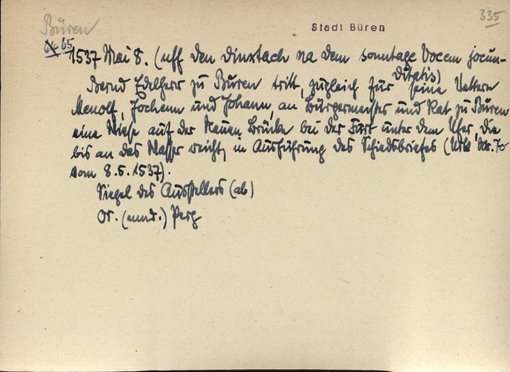 Büren
Stadt Büren
335
65
1537 Mai 8. (uff den dinxtach na dem sonntage Vocem jocun-
ditatis)
Bernd Edelherr zu Büren tritt, zugleich für seine Vettern
Menolf, Jochem und Johann, an Bürgermeister und Rat zu Büren
eine Wiese auf der Neuen Brücke bei der unter dem Ufer, die
bis an das Wasser reicht, in Ausführung des Schiedsbriefes (Urk.
vom 8.5.1537).
Siegel des Ausstellers (ab)
Or. (mnd.) Perg